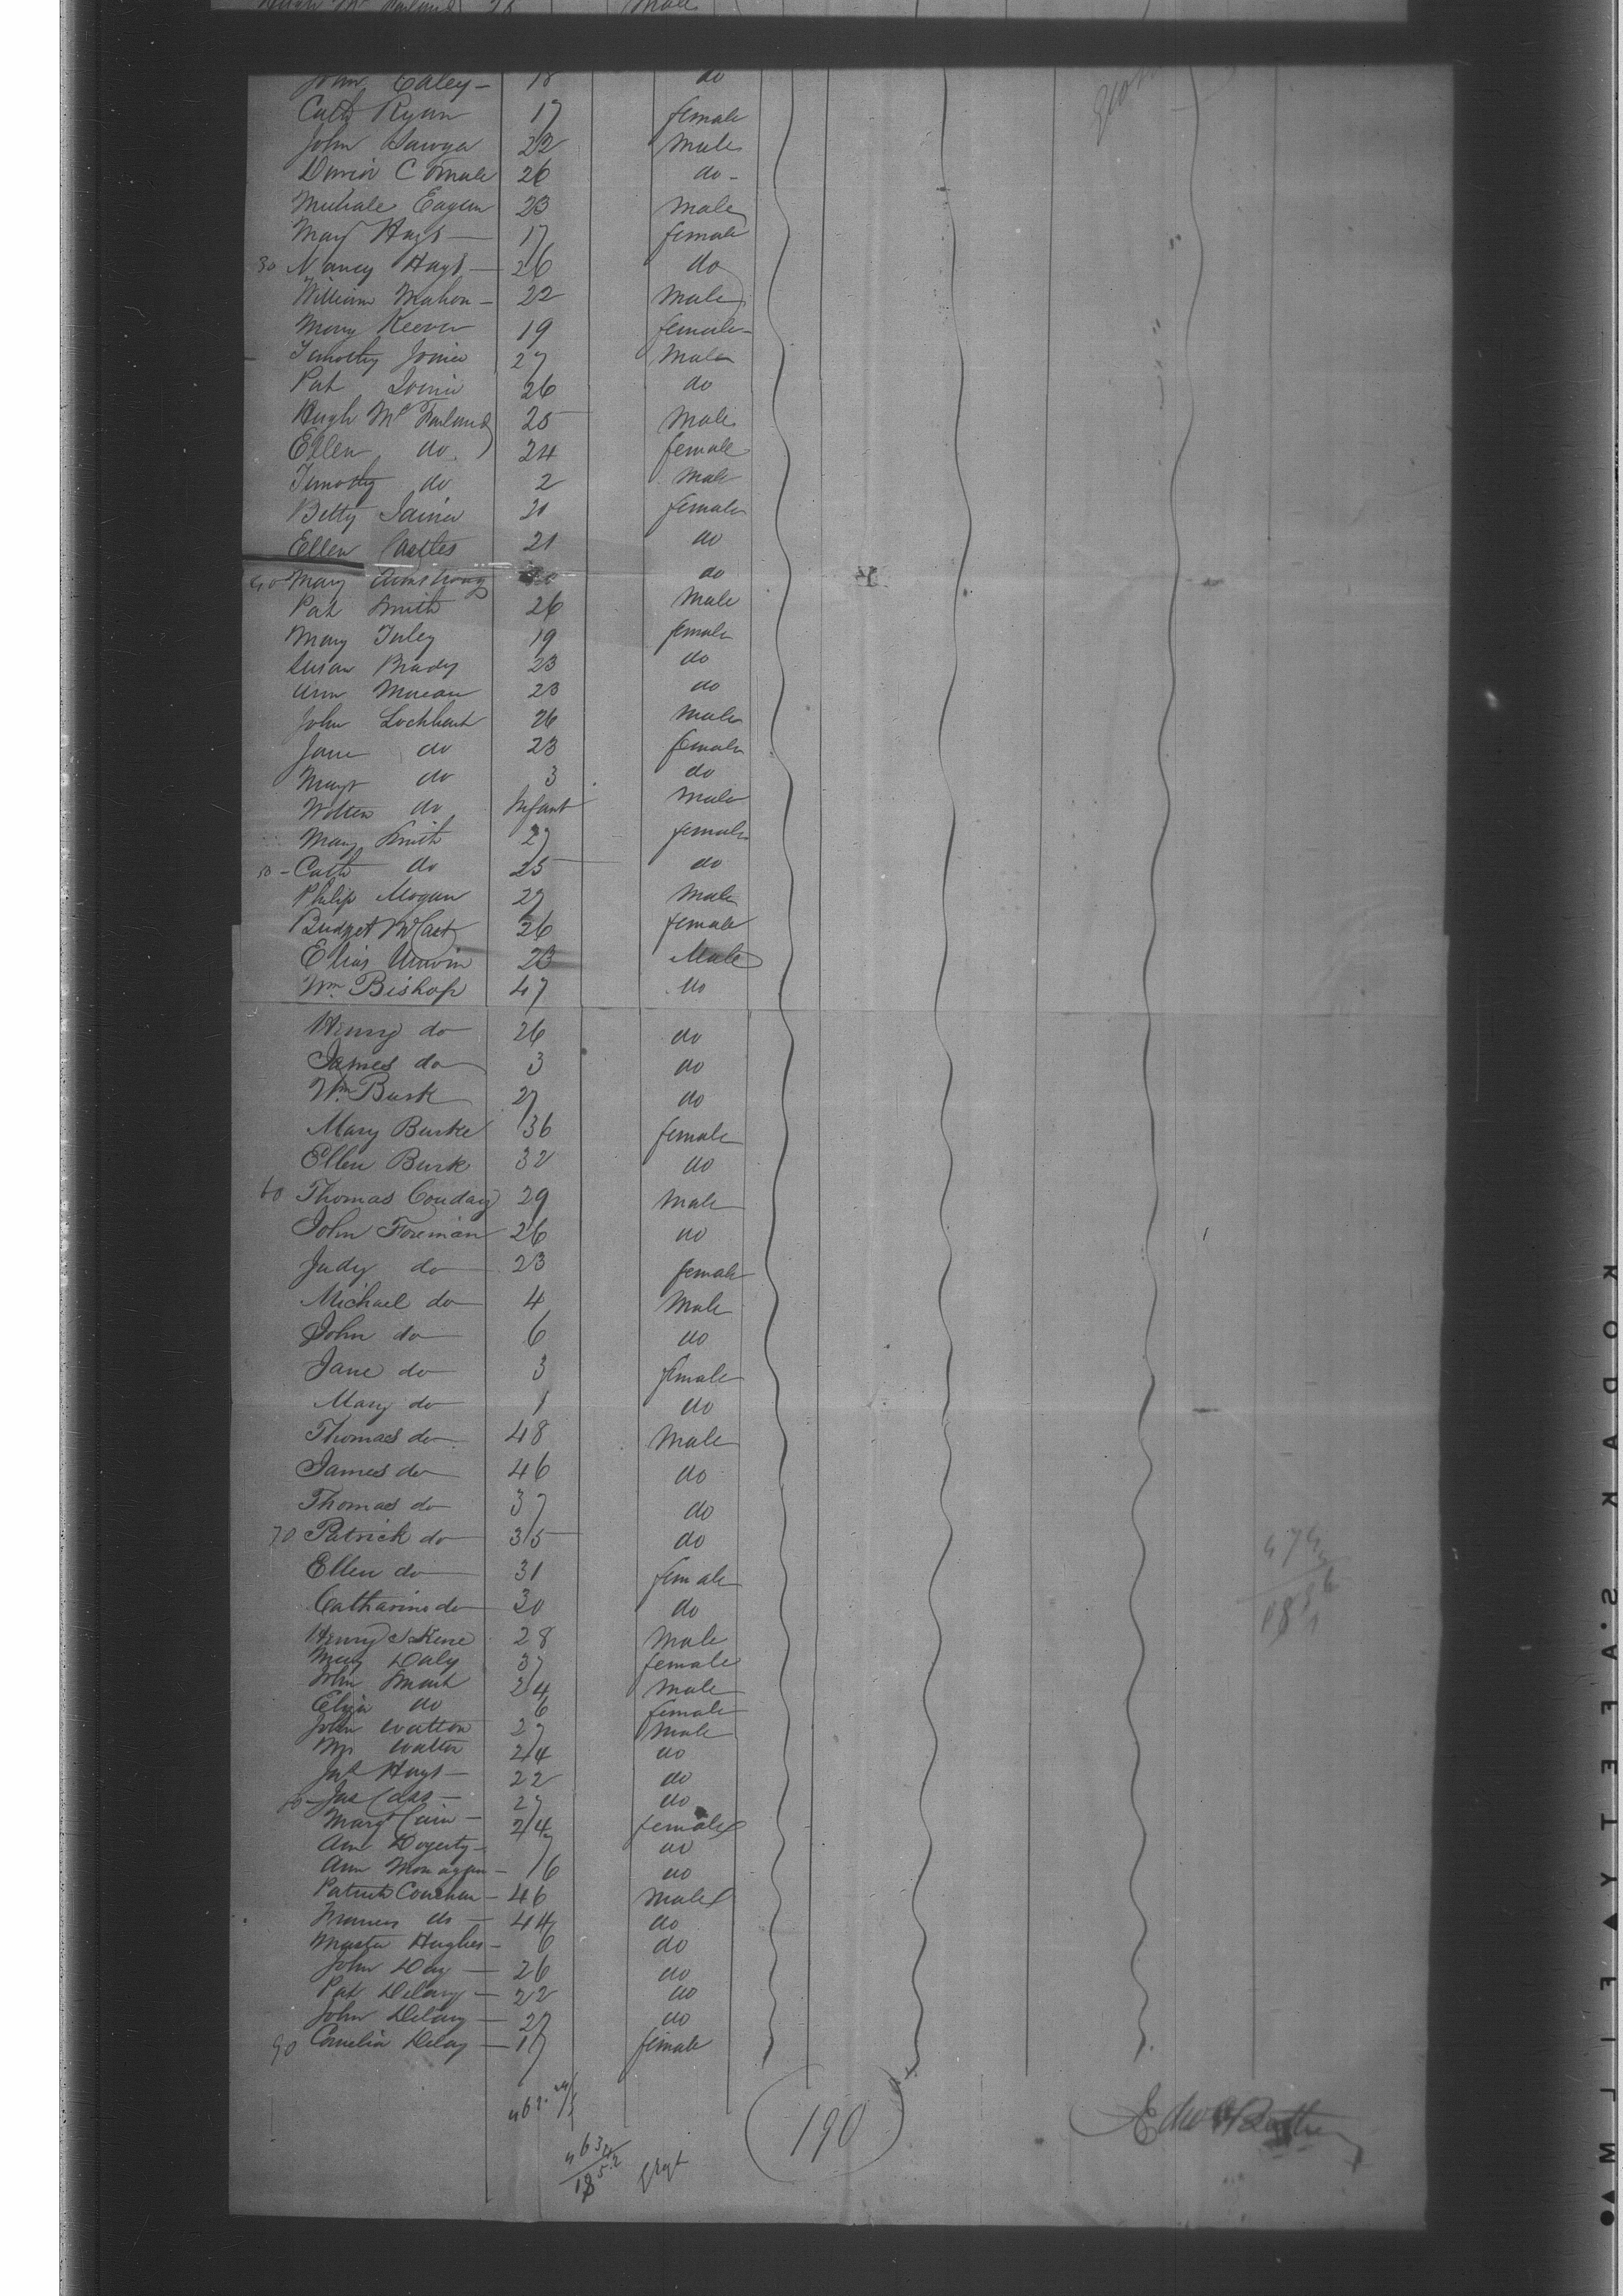 Hugh Mc Farland 25 Male
John Caley - 18 do
Cath Ryan 17 female
John Sawyer 22 Male
26 do -
Michale Eagan 23 Male
Mary Hays 17 female
30 Nancy Hays 26 do
William Mahon - 22 Male
Mary Keever 19 female
Timothy Joinier 27 Male
Pat Joinier 26 do
Hugh Mc Farland 25 Male
Ellen do 24 female
Timothy do 2 Male
Betty Jainer 21 female
Ellen Castles 21 do
40 Mary Armstrong do
Pat Smith 26 Male
Mary Furley 19 female
Susan Brady 23 do
Ann 23 do
John Lockhart 26 Male
Jane do 23 female
Margt do 3 do
do Infant Male
Mary Smith 27 female
Cath do 25 do
Philip Mogan 27 Male
Bridget McCart 26 female
Elias Unwin 23 Male
Wm Bishop 47 do
Henry do 26 do
James do 3 do
Wm Burk 27 do
Mary Burke 36 female
Ellen Burk 32 do
60 Thomas Conday 29 Male
John Foreman 26 do
Judy do 23 female
Michael do 4 Male
John do 6 do
Jane do 3 female
Mary do 1 do
Thomas do 48 Male
James do 46 do
Thomas do 37 do
70 Patrick do 35 do
Ellen do 31 female
Catharine do 30 do
Henry Skene 28 Male
Mary Daly 37 female
John Smart 24 Male
Eliza do 6 female
John Watton 27 Male
Watton 24 do
Jas Hays - 22 do
80 - Jas Cass - 27 do
Margt Cain - 24 female
Ann Dogerty - 7 do
Ann Monagan - 16 do
Patrick Couchan - 46 Male
do - 44 do
Master Hughes - 6 do
John Day - 26 do
Pat Delany - 22 do
John Delany - 27 do
90 Cornelia Delay - 17 female
190
KODAK S.A.FETY ▲ FILM